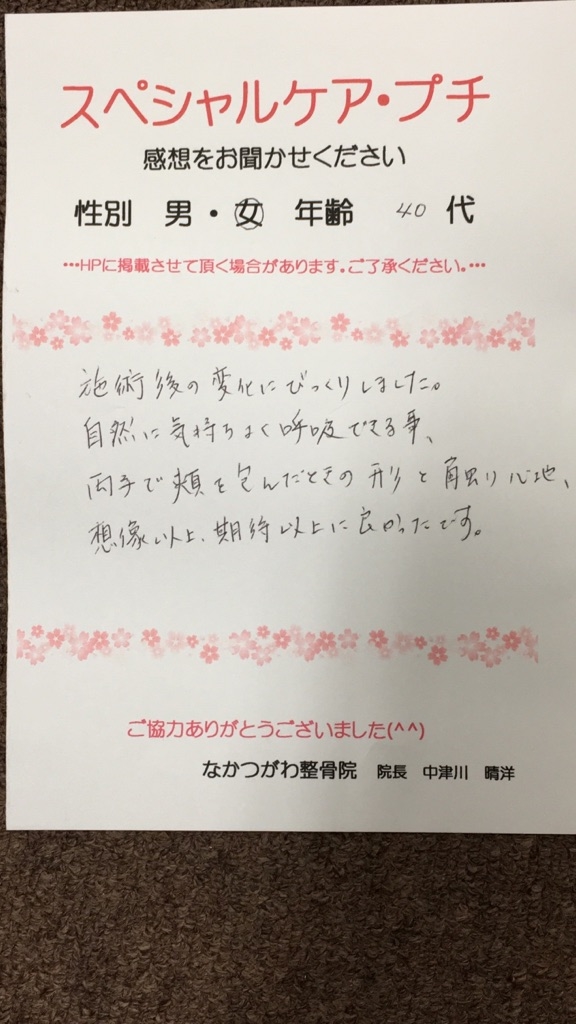 スペシャルケア・プチ
感想をお聞かせください
性別 男・女 年齢 40 代
…HPに掲載させて頂く場合があります。ご了承ください。…
施術後の変化にびっくりしました。
自然に気持ちよく呼吸できる事、
両手で頬を包んだときの形と触り心地、
想像以上、期待以上に良かったです。
ご協力ありがとうございました(^^)
なかつがわ整骨院 院長 中津川 晴洋